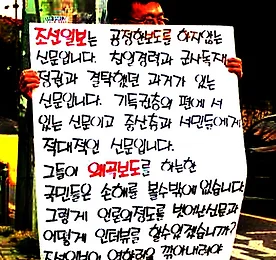 조선일보는 공정한보도를 하지않는
신문입니다. 친일경력과 군사독재
정권과 결탁했던 과거가 있는
신문입니다. 기득권층의 편에 서
있는 신문이고 중산층과 서민들에게
적대적인 신문입니다.
그들이 왜곡보도를 하는한
국민들은 손해를 볼수밖에 있습니다
그렇게 언론의정도를 벗어난신문과
어떻게 인터뷰를 할수있겠습니까?
조선일보의 영향력을 깎아내려야